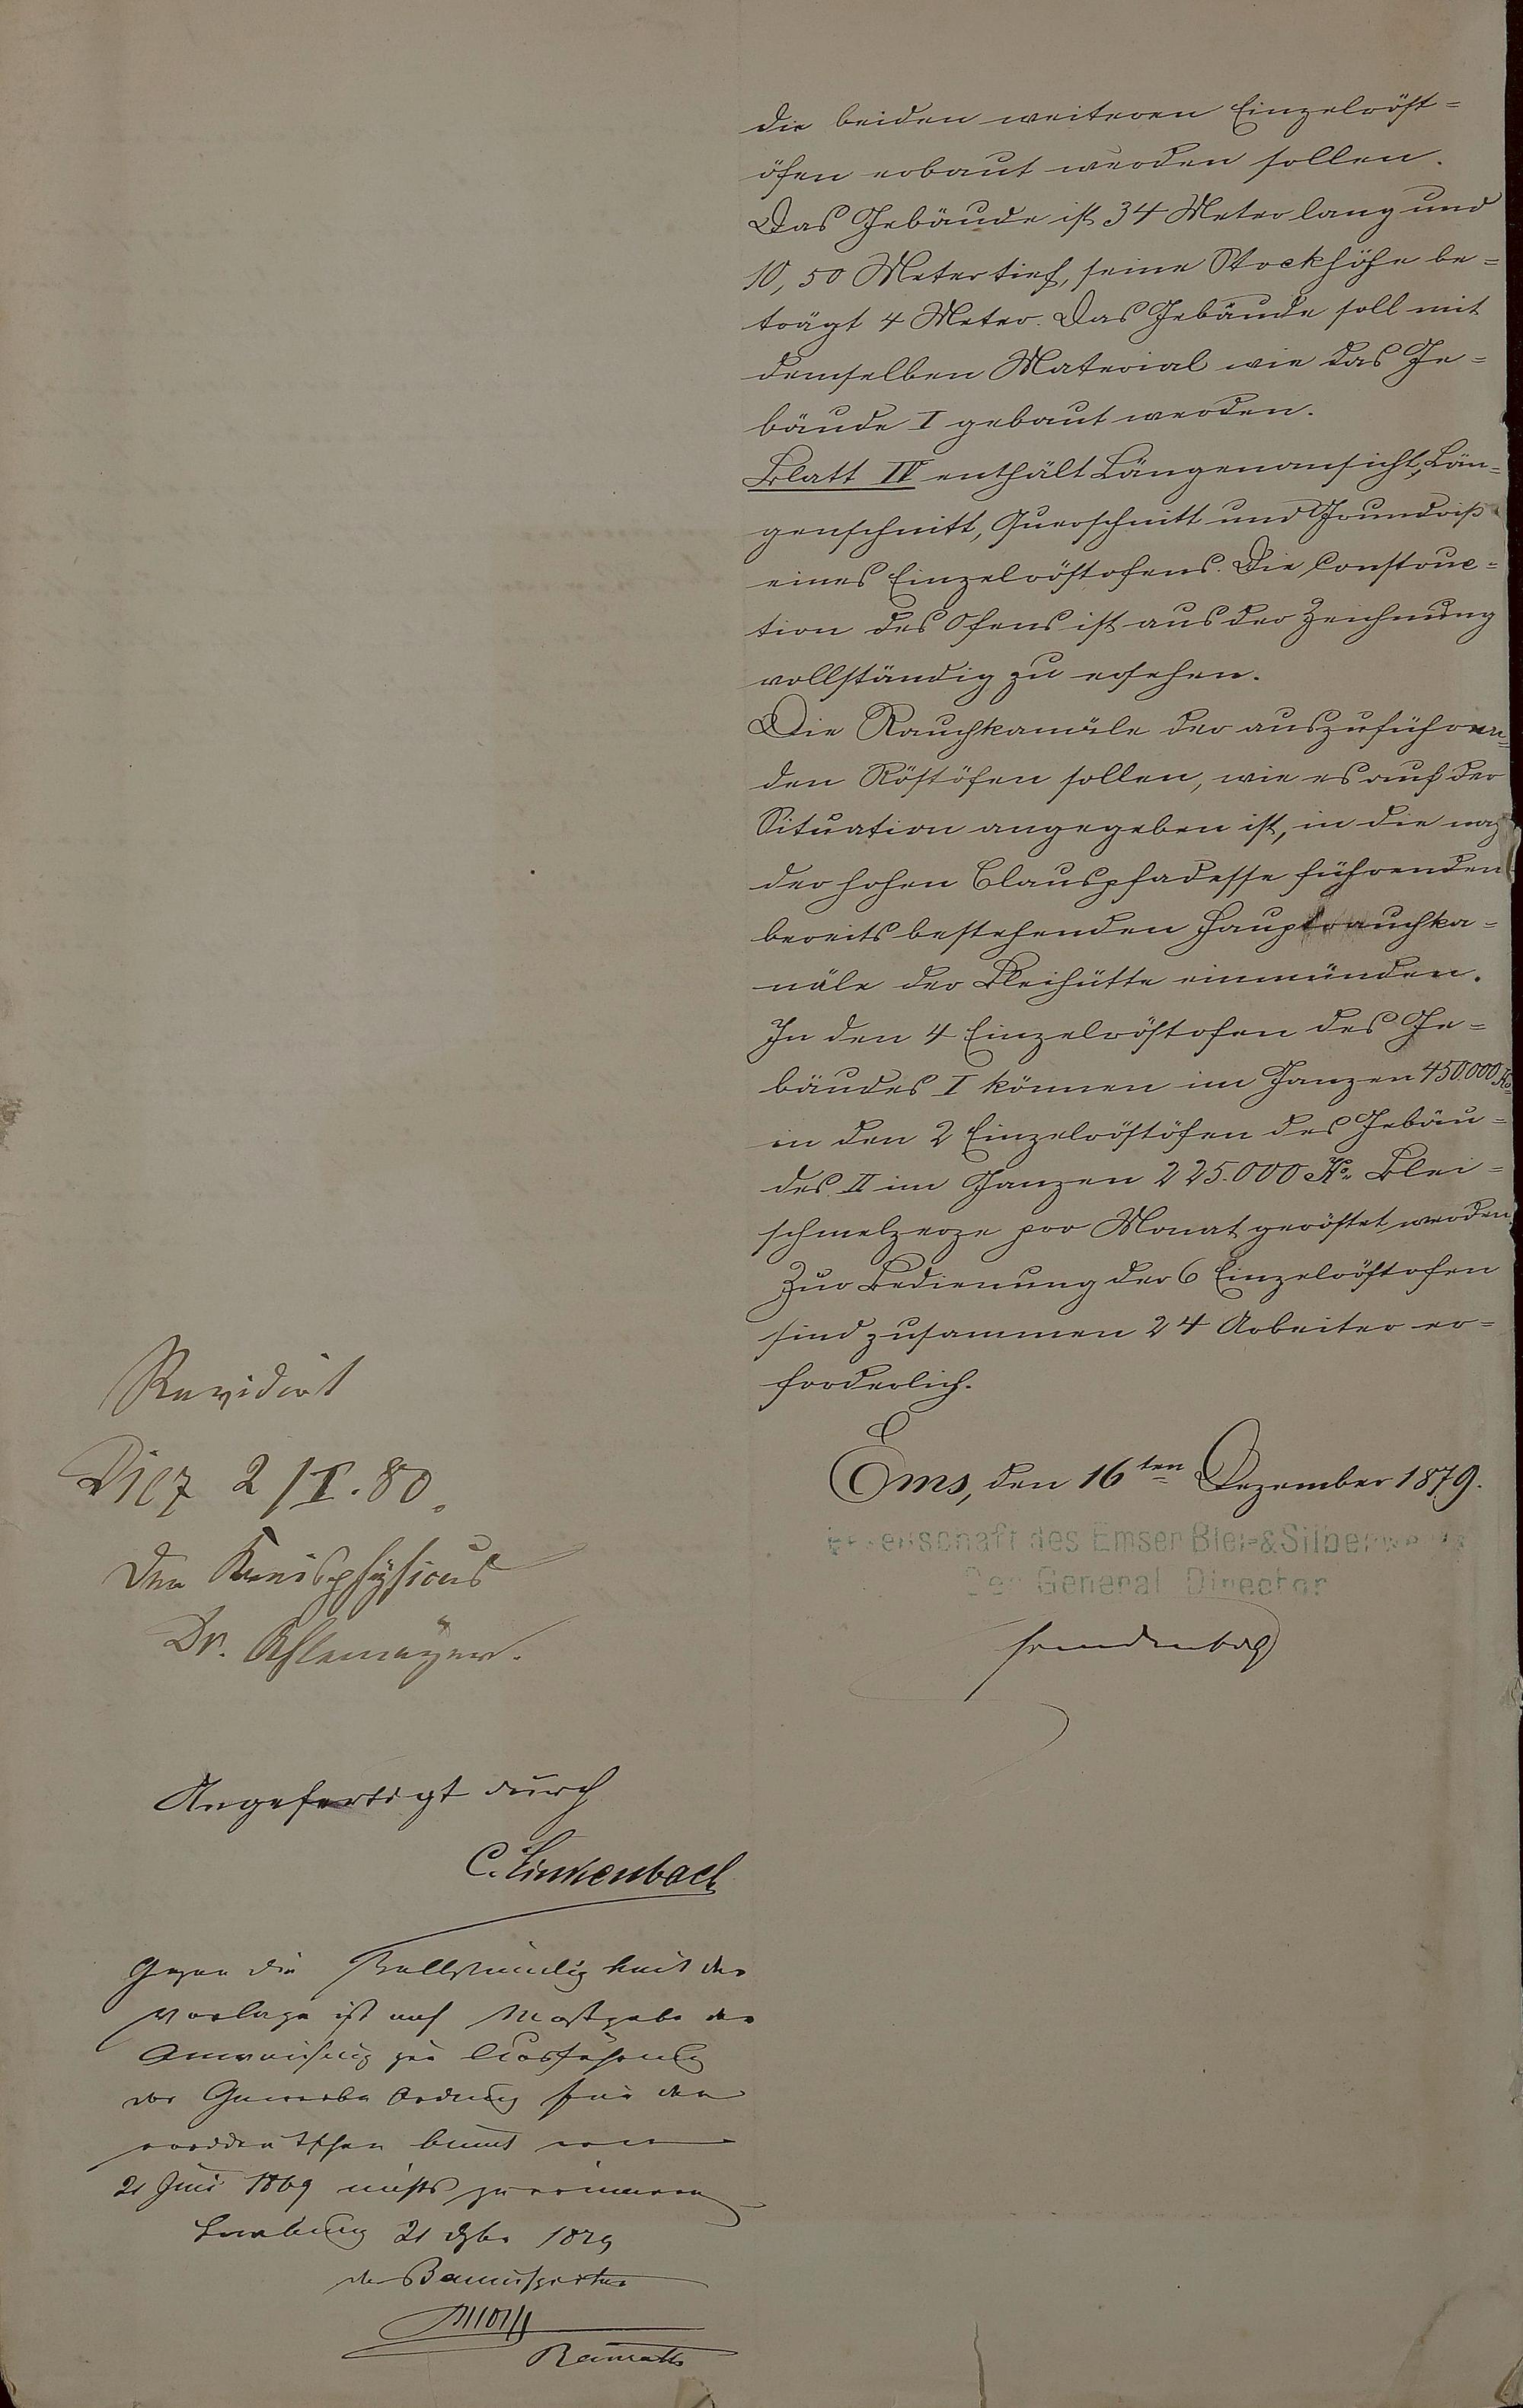 die beiden weiteren Einzelröst=
öfen erbaut werden sollen.
Das Gebäude ist 34 Meter lang und
10,50 Meter tief, seine Stockhöhe be=
trägt 4 Meter. Das Gebäude soll mit
demselben Material wie das Ge=
bäude I gebaut werden.
Blatt IV enthält Längenansicht, Län=
genschnitt, Querschnitt und Grundriß
eines Einzelröstofens. Die Construc=
tion des Ofens ist aus der Zeichnung
vollständig zu ersehen.
Die Rauchkanäle der auszuführen=
den Röstöfen sollen, wie es auf der
Situation angegeben ist, in die nach
der hohen Blauspfadesse führenden
bereits bestehenden Hauptrauchka=
näle der Bleihütte einmünden.
In den 4 Einzelröstofen des Ge=
bäudes I können im Ganzen 450.000 Ko.
in den 2 Einzelröstöfen des Gebäu=
des II im Ganzen 225.000 Ko. Blei=
schmelzerze pro Monat geröstet werden.
Zur Bedienung der 6 Einzelröstofen
sind zusammen 24 Arbeiter er=
forderlich.
Ems, den 16ten Dezember 1879.
des Emser Blei-&Silberwerks
Der General Director
Freudenberg
Revidirt
Diez 2/I.80.
Der Kreisphysicus
Dr. Ahlemeyer.
Angefertigt durch
C. Linkenbach
Gegen die Vollständigkeit der
Vorlage ist nach Maßgabe der
Anweisung zur Ausführung
der Gewerbe Ordnung für den
norddeutschen Bund vom
21 Juni 1869 nichts zu erinnern
21 Dzbr 1879
der Bauinspector
Baurath